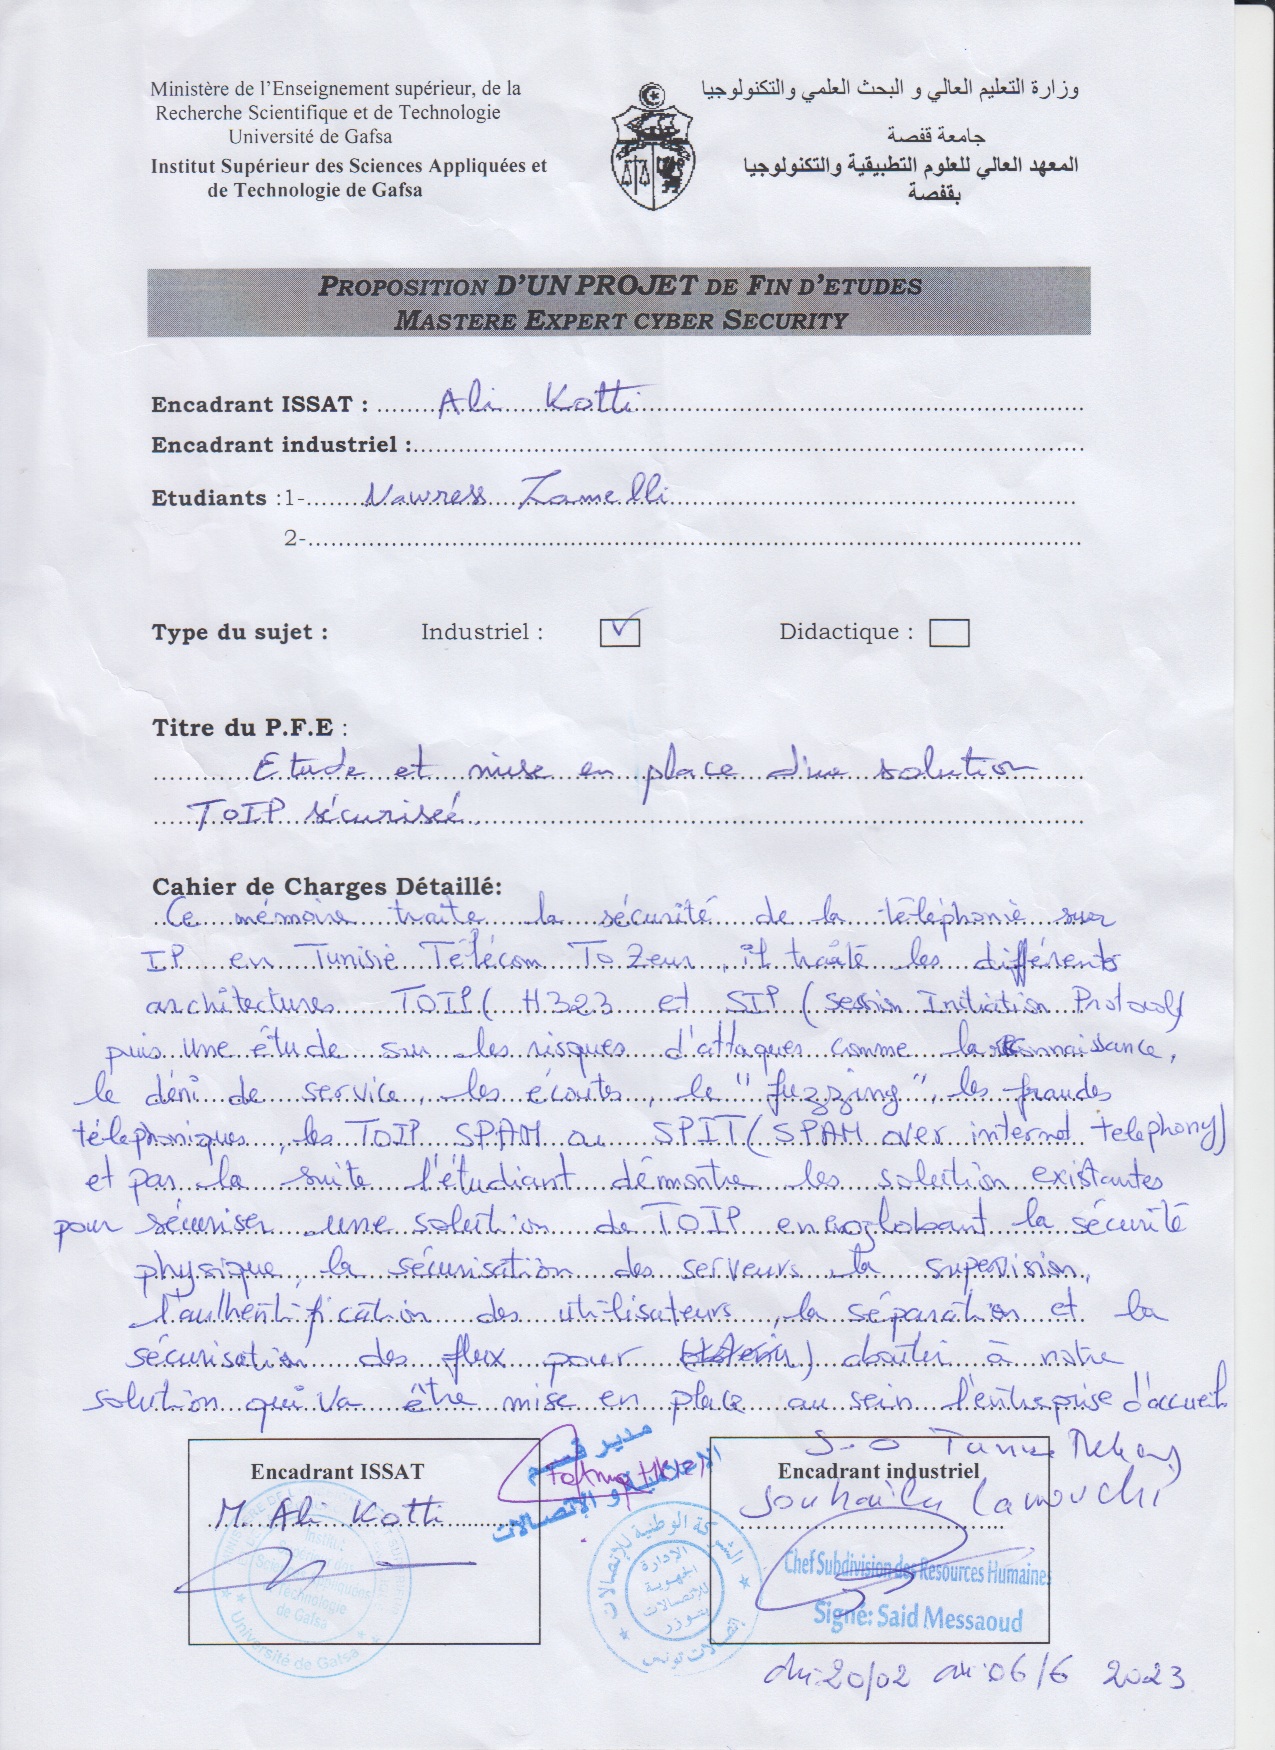 Ministère de l'Enseignement supérieur, de la
Recherche Scientifique et de Technologie
Université de Gafsa
Institut Supérieur des Sciences Appliquées et
de Technologie de Gafsa
وزارة التعليم العالي و البحث العلمي والتكنولوجيا
جامعة قفصة
المعهد العالي للعلوم التطبيقية والتكنولوجيا
بقفصة
PROPOSITION D'UN PROJET DE FIN D'ETUDES
MASTERE EXPERT CYBER SECURITY
Encadrant ISSAT : Ali Kotti
Encadrant industriel :
Etudiants :1- Nawress Zamelli
2-
Type du sujet : Industriel : ✓ Didactique :
Titre du P.F.E :
Etude et mise en place d'une solution
TOIP sécurisée.
Cahier de Charges Détaillé:
Ce mémoire traite la sécurité de la téléphonie sur
IP en Tunisie Télécom Tozeur, il traite les différents
architectures TOIP( H323 et SIP (Session Initiation Protocol)
puis une étude sur les risques d'attaques comme la reconnaissance,
le déni de service, les écoutes, le "fuzzing", les fraudes
téléphoniques, les TOIP SPAM ou SPIT (SPAM over internet telephony)
et par la suite l'étudiant démontre les solution existantes
pour sécuriser une solution de TOIP englobant la sécurité
physique, la sécurisation des serveurs la supervision,
l'authentification des utilisateurs, la séparation et la
sécurisation des flux pour à notre
solution qui va être mise en place au sein l'entreprise d'accueil
Encadrant ISSAT
M. Ali Kotti
Institut
Supérieur des
Sciences Appliquées
Technologie
de Gafsa
Université de Gafsa
مدير قسم
و الإتصالات
الشركة الوطنية للإتصالات
الإدارة
الجهوية
للإتصالات
بتوزر
إتصالات تونس
Encadrant industriel
Souhaila Lamouchi
Chef Subdivision des Resources Humaines
Signé: Said Messaoud
du:20/02 au:06/6 2023